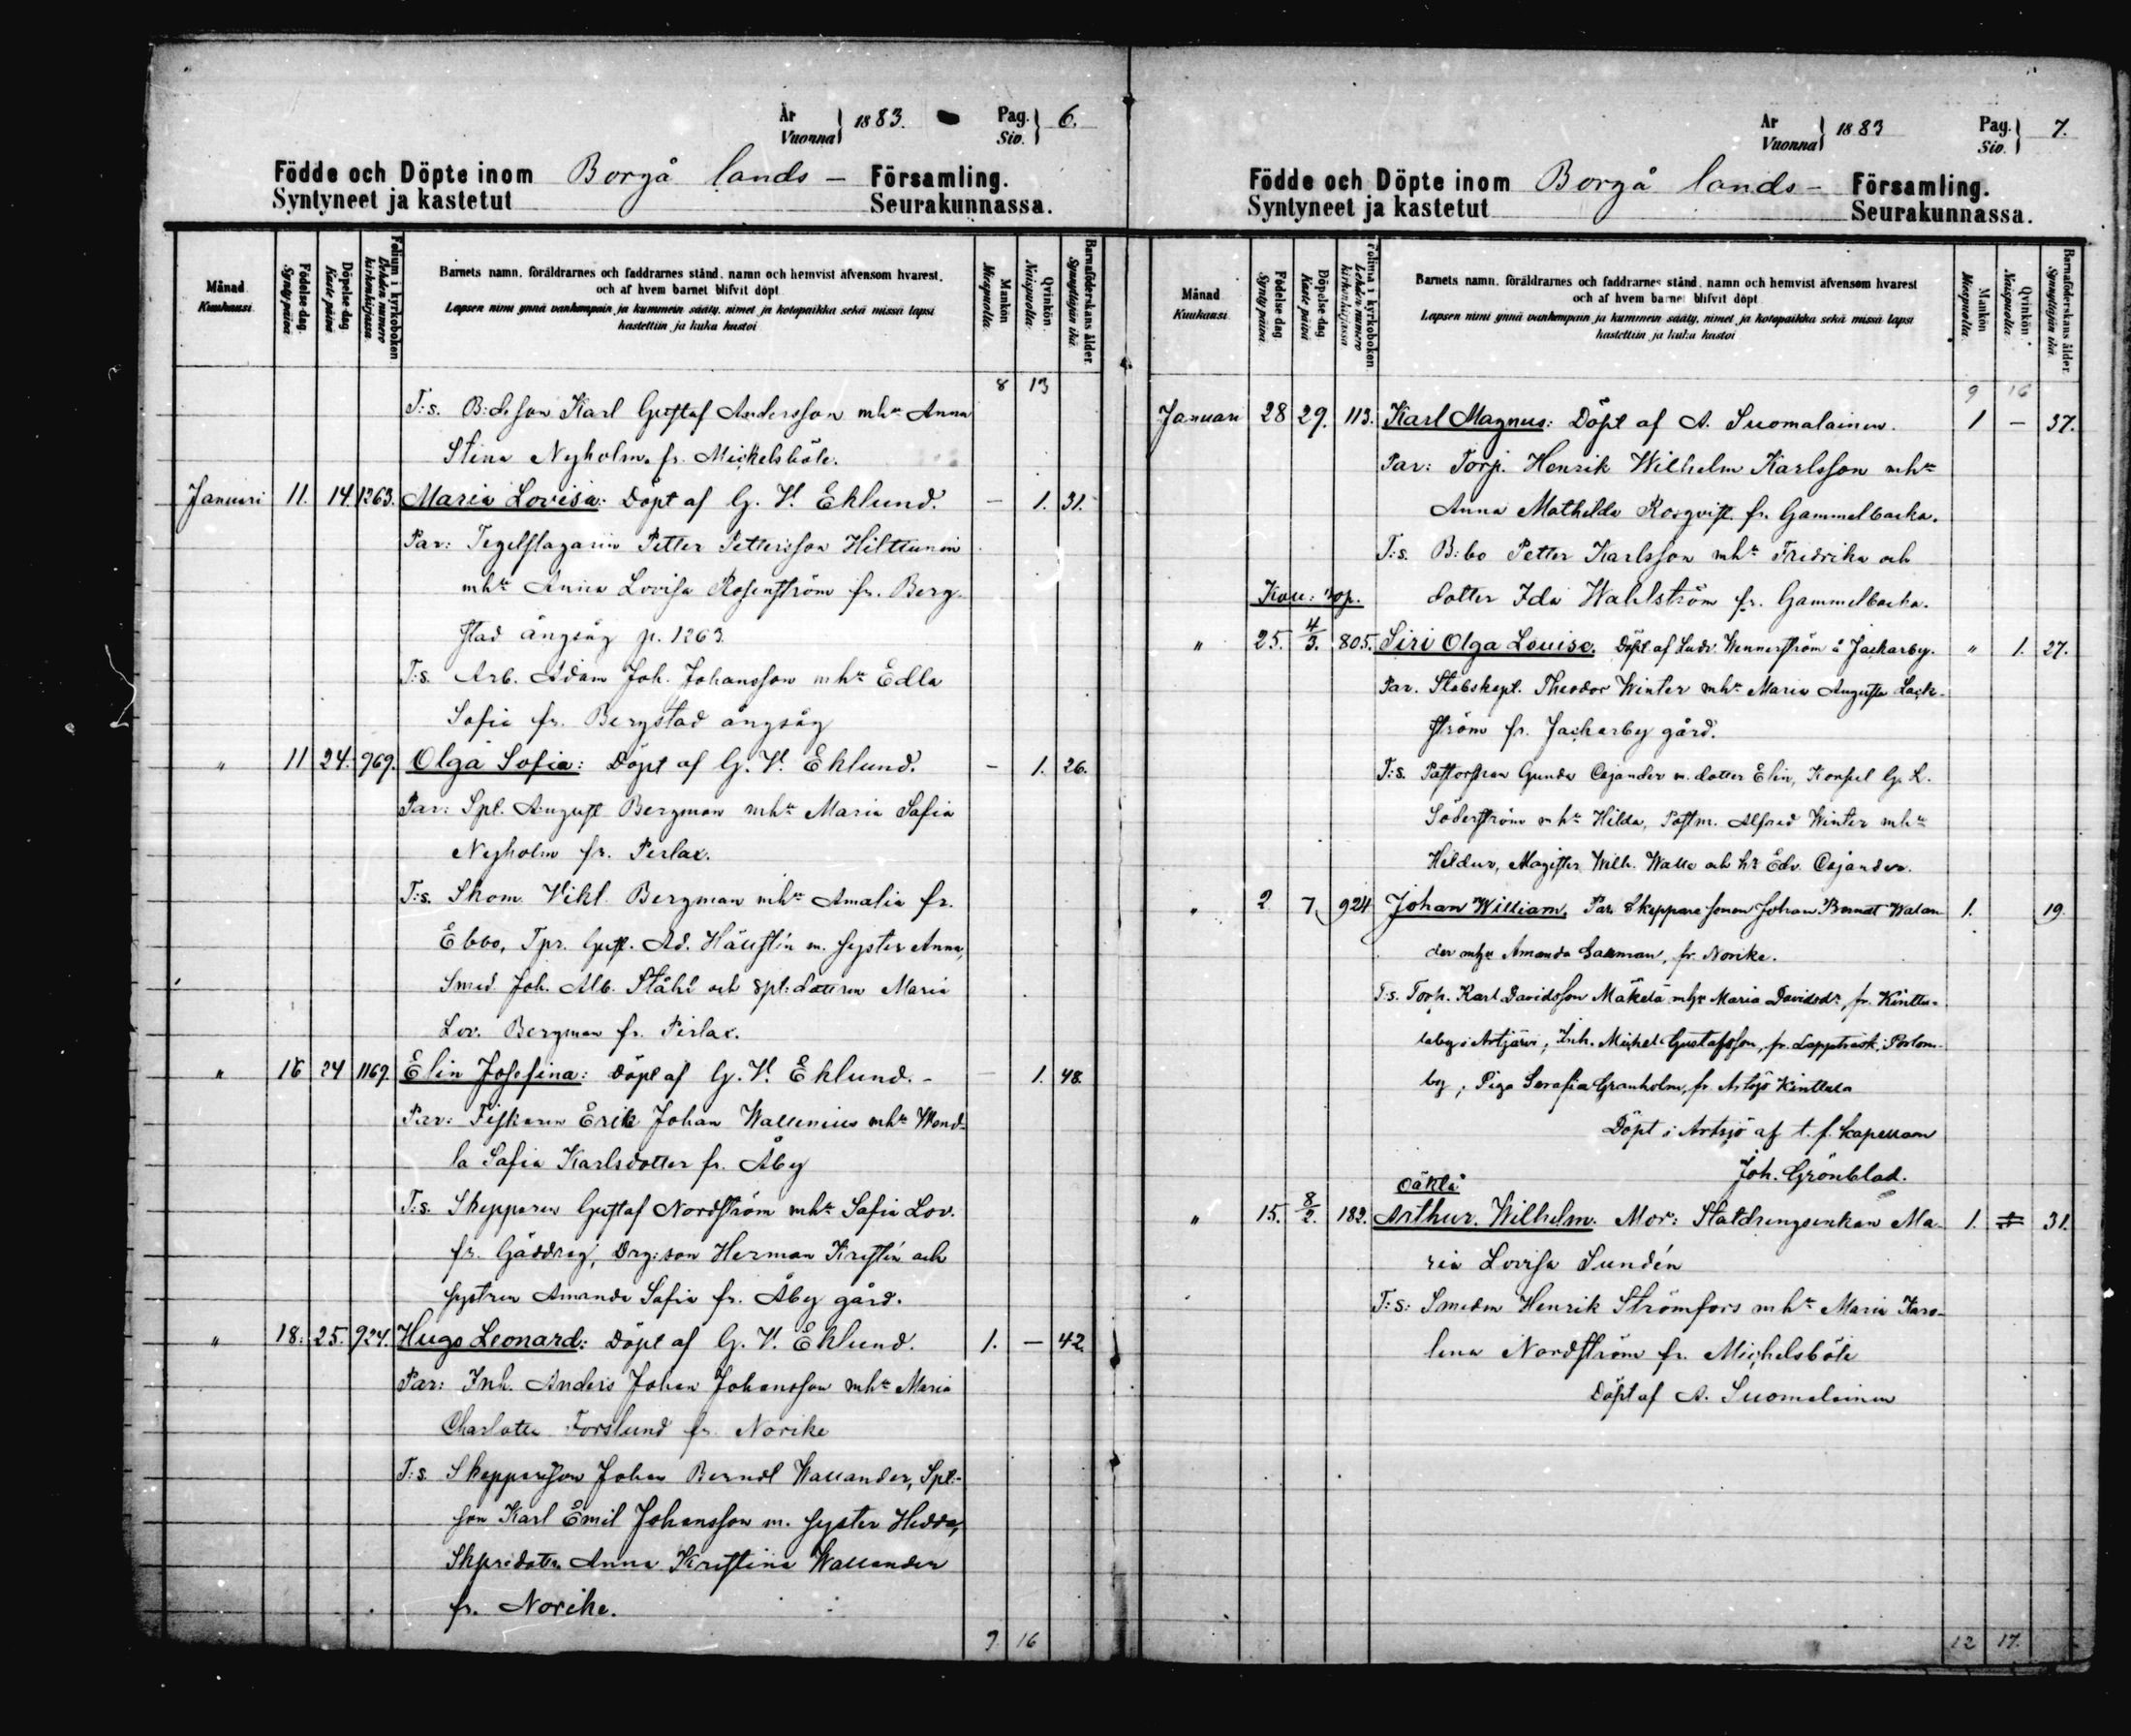 År
Vuonna
1883.
Pag.
Siv.
6.
Födde och Döpte inom Borgå lands- Församling.
Syntyneet ja kastetut Seurakunnassa.
Månad
Kuukausi
Födelse-dag.
Syntypäivä
Döpelse-dag
Kaste-päivä
Folium i kyrkoboken
Lehden numero kirkonkirjassa
Barnets namn, föräldrarnes och faddrarnes stånd, namn och hemvist äfvensom hvarest,
och af hvem barnet blifvit döpt
Lapsen nimi ynnä vanhempain ja kummein sääty, nimet ja kotopaikka sekä missä lapsi
kastettiin ja kuka kastoi
Mankön
Miespuolta.
Qvinkön
Naispuolta.
Barnaföderskans ålder.
Synnyttäjän ikä.
8 13
T:s. B:deson Karl Gustaf Andersson mhu Anna
Stina Nyholm fr. Mickelsböle.
Januari 11. 14. 1263. Maria Lovisa: Döpt af G. V. Eklund. — 1. 31.
Par: Tegelslagarin Petter Pettersson Hilttunin
mhu Anna Lovisa Rosenström fr. Berg-
stad ångsåg p. 1263
T:s. Arb. Adam Joh. Johansson mhu Edla
Sofia fr. Bergstad ångsåg
" 11 24. 969. Olga Sofia: Döpt af G. V. Eklund. — 1. 26.
Par: Spl. August Bergman mhu Maria Sofia
Nyholm fr. Perlax.
T:s. Skom. Vikt. Bergman mhu Amalia fr.
Ebbo, Tpr. Gust. Ad. Hällstén m. syster Anna,
Smed Joh. Alb. Ståhl och spl:dottren Maria
Lov. Bergman fr. Perlax.
" 16 24 1169. Elin Josefina: Döpt af G. V. Eklund. — 1. 48.
Par: Fiskaren Erik Johan Wallenius mhu Wend-
la Sofia Karlsdotter fr. Åby
T:s. Skepparen Gustaf Nordström mhu Sofia Lov.
fr. Gäddrag, Drg:son Herman Kristén och
systren Amanda Sofia fr. Åby gård.
" 18. 25. 924. Hugo Leonard: Döpt af G. V. Eklund. 1. — 42.
Par: Inh. Anders Johan Johansson mhu Maria
Charlotta Forslund fr. Norike
T:s. Skepparson Johan Berndt Wallander, Spl:-
son Karl Emil Johansson m. syster Hedda,
Skpredottr. Anna Kristina Wallander
fr. Norike.
9 16
År
Vuonna
1883
Pag.
Siv.
7.
Födde och Döpte inom Borgå lands- Församling.
Syntyneet ja kastetut Seurakunnassa.
Månad
Kuukausi
Födelse-dag
Syntypäivä
Döpelse-dag
Kaste-päivä
Folium i kyrkoboken
Lehden numero kirkonkirjassa
Barnets namn, föräldrarnes och faddrarnes stånd, namn och hemvist äfvensom hvarest
och af hvem barnet blifvit döpt
Lapsen nimi ynnä vanhempain ja kummein sääty, nimet ja kotopaikka sekä missä lapsi
kastettiin ja kuka kastoi
Mankön
Miespuolta.
Qvinkön
Naispuolta.
Barnaföderskans ålder.
Synnyttäjän ikä.
9 16
Januari 28 29. 113. Karl Magnus: Döpt af A. Suomalainen. 1 — 37.
Par: Torp. Henrik Wilhelm Karlsson mhu
Anna Mathilda Rosqvist fr. Gammelbacka.
T:s. B:bo Petter Karlsson mhu Fredrika och
dotter Ida Wahlström fr. Gammelbacka.
" 25. 4/3. 805. Siri Olga Louise. Döpt af Ludv. Wennerström å Jackarby. " 1. 27.
Par. Stabskapt. Theodor Winter mhu Maria Augusta Lack-
ström fr. Jackarby gård.
T:s. Pastorskan Gunda Cajander m. dotter Elin, Konsul G. L.
Söderström mhu Hilda, Postm. Alfred Winter mhu
Hildur, Magister Wilh. Walle och hr Edv. Cajander.
" 2 7 924 Johan William. Par. Skeppare sonen Johan Berndt Walan- 1. 19.
der mhu Amanda Sakman, fr. Norike.
T.s. Torp. Karl Davidsson Mäkelä mhu Maria Davidsdr, fr. Kinttu-
laby i Artjärvi, Inh. Mickel Gustafsson, fr. Lappträsk, Porlom-
by, Piga Serafia Granholm, fr. Artsjö Kinttula
Döpt i Artsjö af t. f. kapellan
Joh. Grönblad.
oäkta
" 15. 8/2. 182. Arthur Wilhelm. Mor: Statdrengsenkan Ma- 1. 31.
ria Lovisa Sundén
T:s: Smeden Henrik Strömfors mhu Maria Karo-
lina Nordström fr. Mickelsböle
Döpt af A. Suomalainen
12 17.